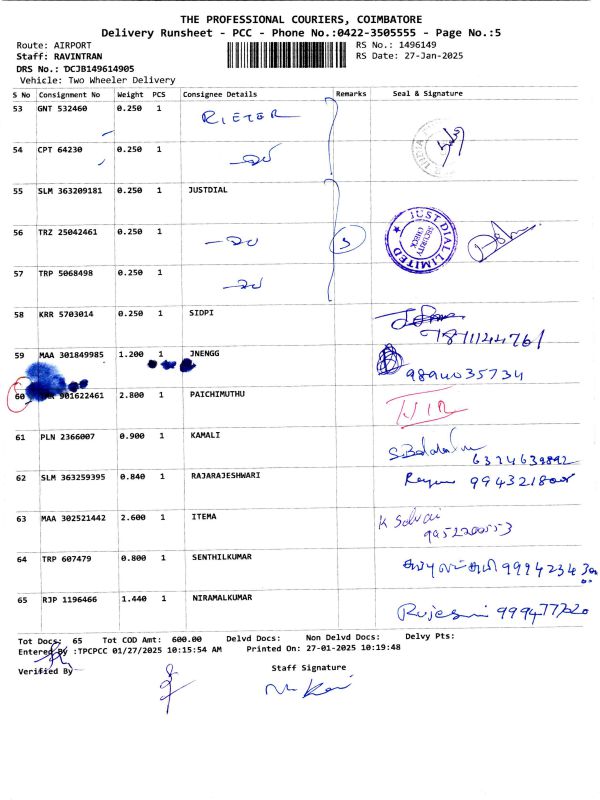 THE PROFESSIONAL COURIERS, COIMBATORE
Delivery Runsheet - PCC - Phone No.:0422-3505555 - Page No.:5
Route: AIRPORT RS No.: 1496149
Staff: RAVINTRAN RS Date: 27-Jan-2025
DRS No.: DCJB149614905
Vehicle: Two Wheeler Delivery
S No Consignment No Weight PCS Consignee Details Remarks Seal & Signature
53 GNT 532460 0.250 1 RIETER
54 CPT 64230 0.250 1
55 SLM 363209181 0.250 1 JUSTDIAL
JUST DIAL LIMITED
SECURITY CHECK
56 TRZ 25042461 0.250 1 3
57 TRP 5068498 0.250 1
58 KRR 5703014 0.250 1 SIDPI
59 MAA 301849985 1.200 1 JNENGG 9894035734
60 901622461 2.800 1 PAICHIMUTHU
61 PLN 2366007 0.900 1 KAMALI
62 SLM 363259395 0.840 1 RAJARAJESHWARI
63 MAA 302521442 2.600 1 ITEMA K Selvai
64 TRP 607479 0.800 1 SENTHILKUMAR
65 RJP 1196466 1.440 1 NIRAMALKUMAR
Tot Docs: 65 Tot COD Amt: 600.00 Delvd Docs: Non Delvd Docs: Delvy Pts:
Entered By :TPCPCC 01/27/2025 10:15:54 AM Printed On: 27-01-2025 10:19:48
Verified By Staff Signature